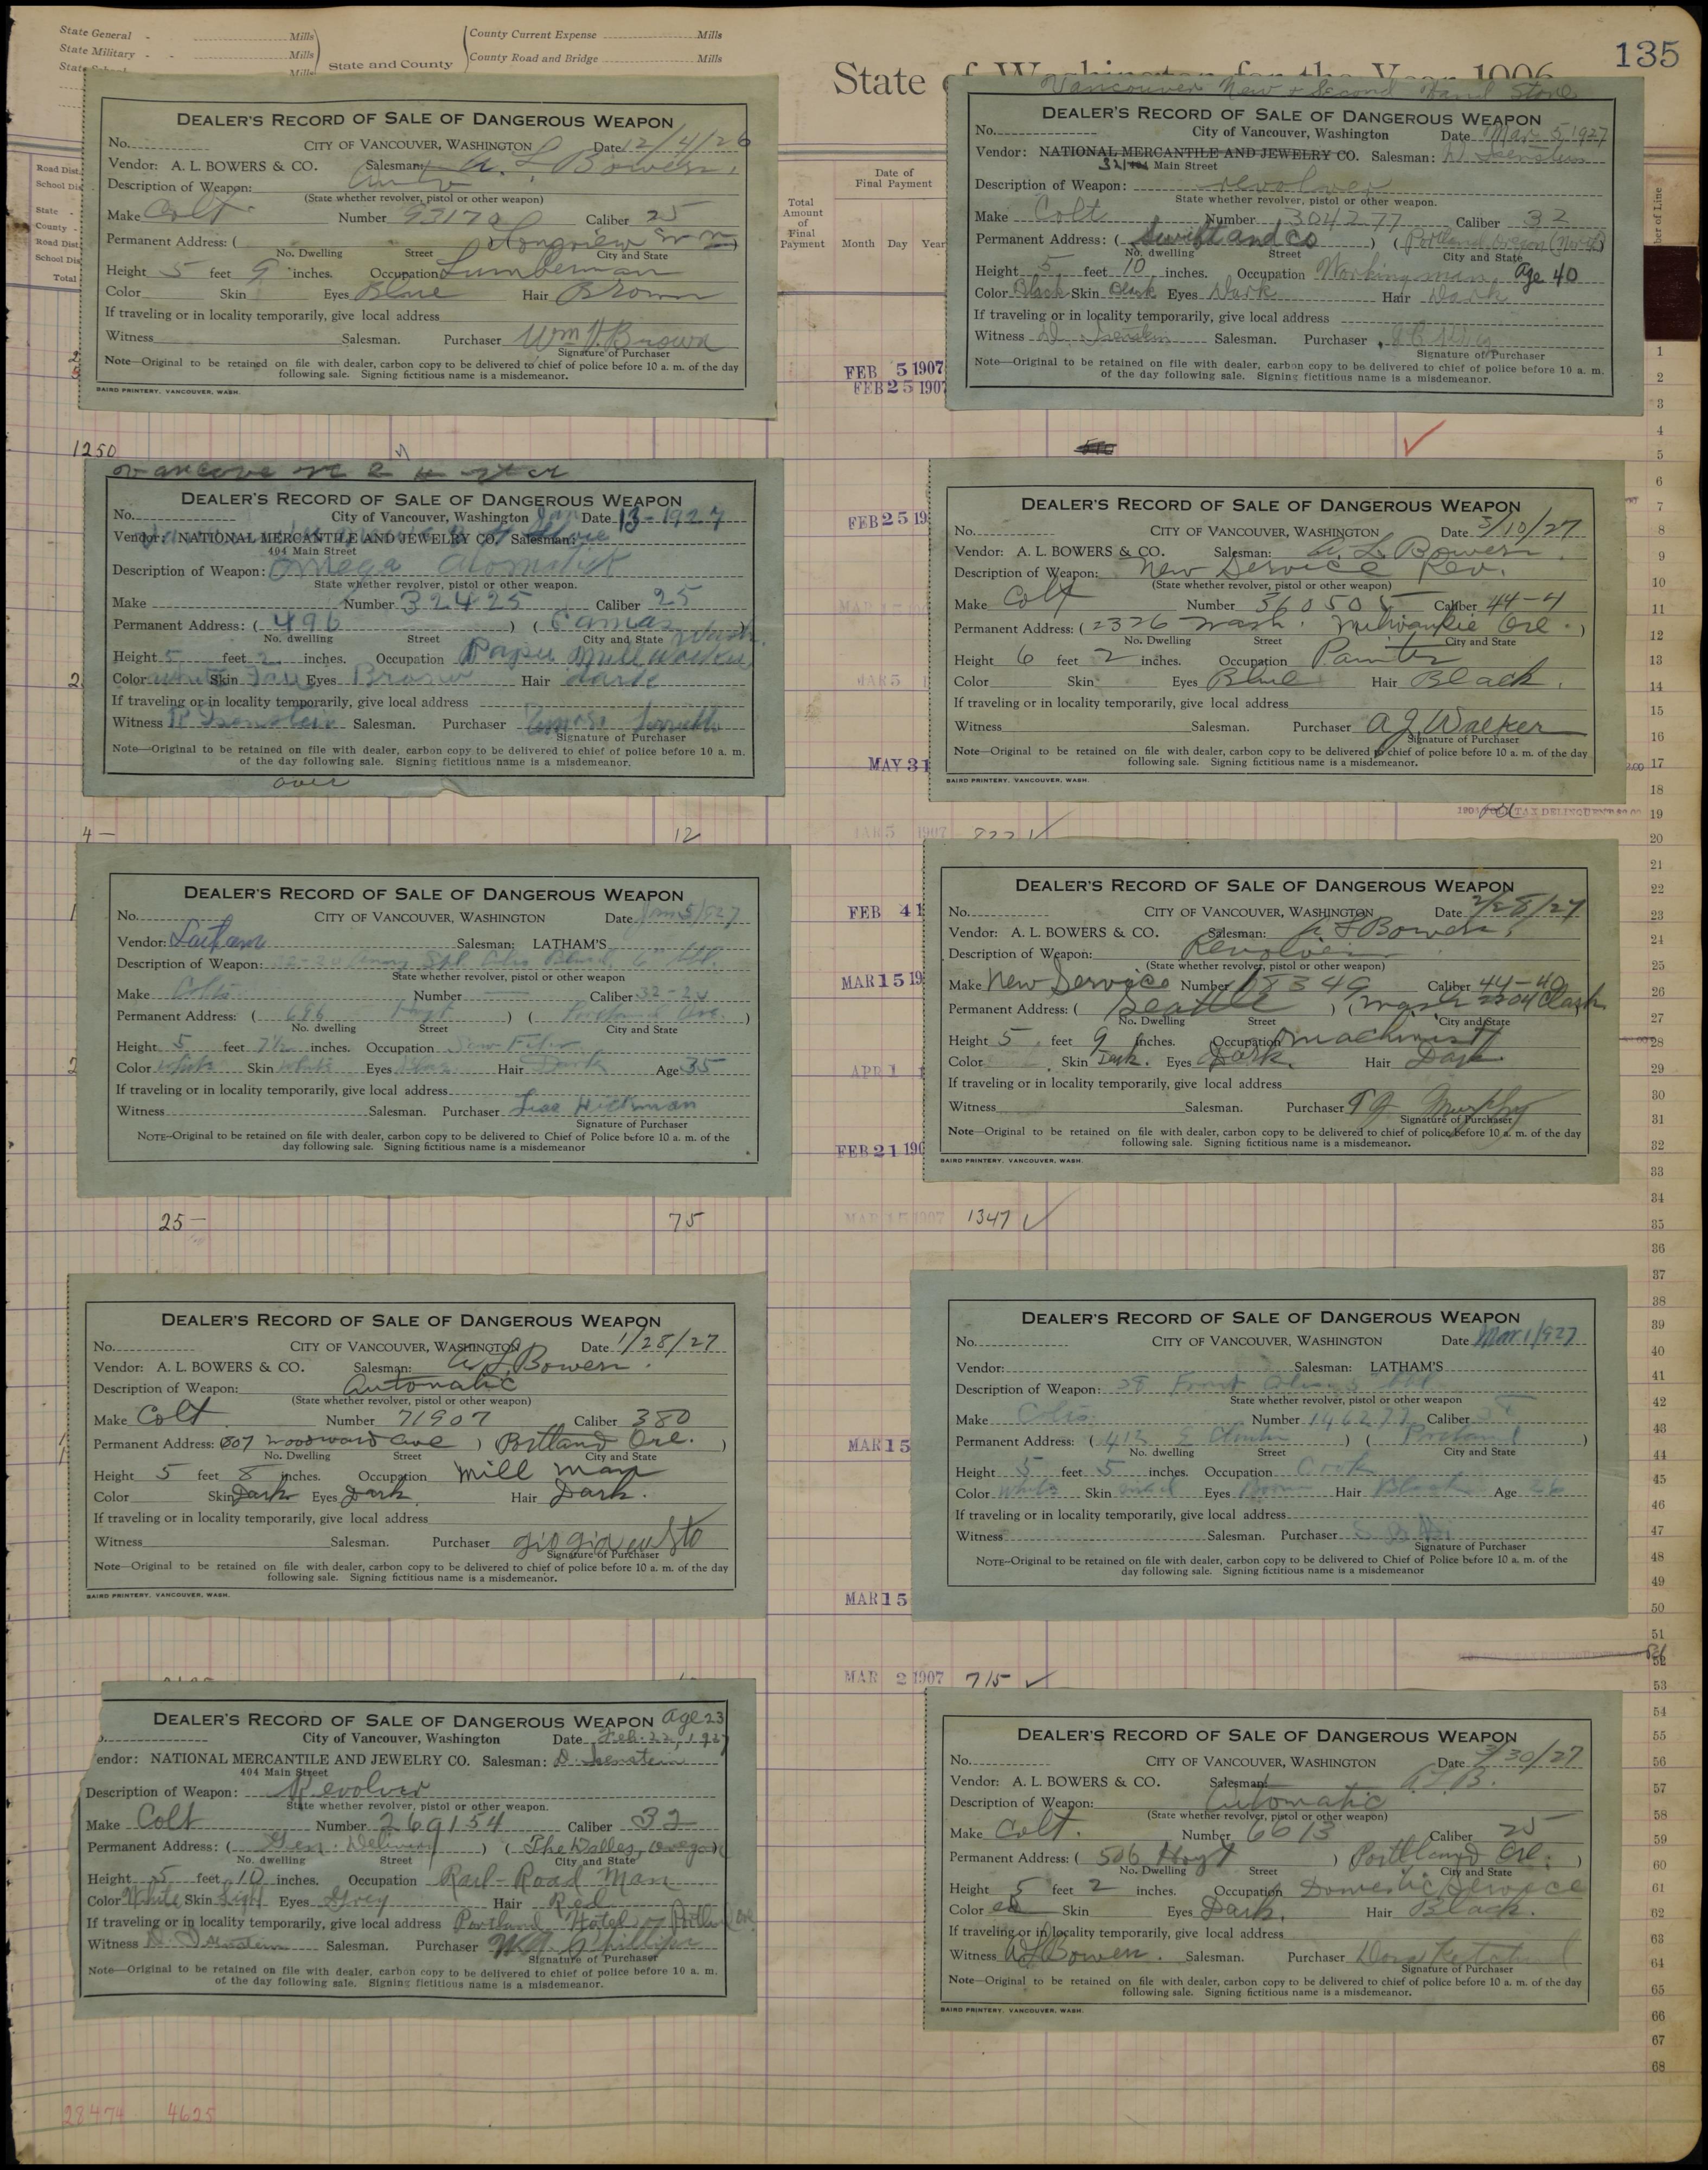 State General - Mills
State Military - - Mills
Mills
State and County
County Current Expense Mills
County Road and Bridge Mills
State of Washington for the Year 1906
135
Road Dist.
School Dis
State -
County -
Road Dist.
School Dis
Total
Total Amount of Final Payment
Date of Final Payment
Month Day Year
ber of Line
DEALER'S RECORD OF SALE OF DANGEROUS WEAPON
No. CITY OF VANCOUVER, WASHINGTON Date 12/4/26
Vendor: A. L. BOWERS & CO. Salesman: A. L. Bowers.
Description of Weapon: Auto
(State whether revolver, pistol or other weapon.
Make Colt Number 93170 Caliber 25
Permanent Address: ( Longview Wn )
No. Dwelling Street City and State
Height 5 feet 9 inches. Occupation Lumberman
Color Skin Eyes Blue Hair Brown
If traveling or in locality temporarily, give local address
Witness Salesman. Purchaser Wm H. Brown
Signature of Purchaser
Note—Original to be retained on file with dealer, carbon copy to be delivered to chief of police before 10 a. m. of the day
following sale. Signing fictitious name is a misdemeanor.
BAIRD PRINTERY, VANCOUVER, WASH.
Vancouver New + Second Hand Store
DEALER'S RECORD OF SALE OF DANGEROUS WEAPON
No. City of Vancouver, Washington Date Mar. 5, 1927
Vendor: NATIONAL MERCANTILE AND JEWELRY CO. Salesman: D. Isenstein
Main Street
Description of Weapon: revolver
State whether revolver, pistol or other weapon.
Make Colt Number 304277 Caliber 32
Permanent Address: ( Swift and Co ) ( Portland Oregon (North) )
No. dwelling Street City and State
Height 5 feet 10 inches. Occupation Working man Age 40
Color Black Skin Black Eyes Dark Hair Dark
If traveling or in locality temporarily, give local address
Witness D. Isenstein Salesman. Purchaser
Signature of Purchaser
Note—Original to be retained on file with dealer, carbon copy to be delivered to chief of police before 10 a. m.
of the day following sale. Signing fictitious name is a misdemeanor.
FEB 5 1907
FEB 25 1907
1250
DEALER'S RECORD OF SALE OF DANGEROUS WEAPON
No. City of Vancouver, Washington Jan Date 13-1927
Vendor: NATIONAL MERCANTILE AND JEWELRY CO. Salesman:
404 Main Street
Description of Weapon: Omega Atomatick
State whether revolver, pistol or other weapon.
Make Number 32425 Caliber 25
Permanent Address: ( 496 ) ( Camas Wash. )
No. dwelling Street City and State
Height 5 feet 2 inches. Occupation Paper Mill Worker
Color white Skin Fair Eyes Brown Hair dark
If traveling or in locality temporarily, give local address
Witness D Isenstein Salesman. Purchaser Smith
Signature of Purchaser
Note—Original to be retained on file with dealer, carbon copy to be delivered to chief of police before 10 a. m.
of the day following sale. Signing fictitious name is a misdemeanor.
over
FEB 25 19
MAR 5
MAY 31
DEALER'S RECORD OF SALE OF DANGEROUS WEAPON
No. CITY OF VANCOUVER, WASHINGTON Date 3/10/27
Vendor: A. L. BOWERS & CO. Salesman: A. L. Bowers.
Description of Weapon: New Service Rev.
(State whether revolver, pistol or other weapon)
Make Colt Number 360505 Caliber 44-4
Permanent Address: ( 2326 Wash. Milwaukie Ore. )
No. Dwelling Street City and State
Height 6 feet 2 inches. Occupation Painter
Color Skin Eyes Blue Hair Black.
If traveling or in locality temporarily, give local address
Witness Salesman. Purchaser A J Walker
Signature of Purchaser
Note—Original to be retained on file with dealer, carbon copy to be delivered to chief of police before 10 a. m. of the day
following sale. Signing fictitious name is a misdemeanor.
BAIRD PRINTERY, VANCOUVER, WASH.
4 — 12
MAR 5 1907 822 ✓
DEALER'S RECORD OF SALE OF DANGEROUS WEAPON
No. CITY OF VANCOUVER, WASHINGTON Date Jan 5/927
Vendor: Latham Salesman: LATHAM'S
Description of Weapon: 32-20 Army Spl. Colts Blued 6"
State whether revolver, pistol or other weapon
Make Colts Number — Caliber 32-20
Permanent Address: ( 686 Hoyt ) ( Portland Ore. )
No. dwelling Street City and State
Height 5 feet 7½ inches. Occupation Saw Filer
Color White Skin White Eyes Blue Hair Dark Age 35
If traveling or in locality temporarily, give local address
Witness Salesman. Purchaser Hickman
Signature of Purchaser
NOTE--Original to be retained on file with dealer, carbon copy to be delivered to Chief of Police before 10 a. m. of the
day following sale. Signing fictitious name is a misdemeanor
FEB 4 1
MAR 15 19
APR 1
FEB 21 190
DEALER'S RECORD OF SALE OF DANGEROUS WEAPON
No. CITY OF VANCOUVER, WASHINGTON Date 2/28/27
Vendor: A. L. BOWERS & CO. Salesman: A L Bowers.
Description of Weapon: Revolver
(State whether revolver, pistol or other weapon)
Make New Service Number 18349 Caliber 44-40
Permanent Address: ( Seattle ) ( Wash 2204 Clark
No. Dwelling Street City and State
Height 5 feet 9 inches. Occupation machinist
Color Skin Dark. Eyes Dark. Hair Dark
If traveling or in locality temporarily, give local address
Witness Salesman. Purchaser Murphy
Signature of Purchaser
Note—Original to be retained on file with dealer, carbon copy to be delivered to chief of police before 10 a. m. of the day
following sale. Signing fictitious name is a misdemeanor.
BAIRD PRINTERY, VANCOUVER, WASH.
25 — 75
MAR 15 1907 1347 ✓
DEALER'S RECORD OF SALE OF DANGEROUS WEAPON
No. CITY OF VANCOUVER, WASHINGTON Date 1/28/27
Vendor: A. L. BOWERS & CO. Salesman: A L Bowers.
Description of Weapon: Automatic
(State whether revolver, pistol or other weapon)
Make Colt Number 71907 Caliber 380
Permanent Address: 807 Woodward Ave ) Portland Ore. )
No. Dwelling Street City and State
Height 5 feet 8 inches. Occupation Mill man
Color Skin Dark Eyes Dark Hair Dark.
If traveling or in locality temporarily, give local address
Witness Salesman. Purchaser
Signature of Purchaser
Note—Original to be retained on file with dealer, carbon copy to be delivered to chief of police before 10 a. m. of the day
following sale. Signing fictitious name is a misdemeanor.
BAIRD PRINTERY, VANCOUVER, WASH.
MAR 15
MAR 15
DEALER'S RECORD OF SALE OF DANGEROUS WEAPON
No. CITY OF VANCOUVER, WASHINGTON Date Mar. 1/927
Vendor: Salesman: LATHAM'S
Description of Weapon: 38
State whether revolver, pistol or other weapon
Make Colts Number 146277 Caliber 38
Permanent Address: ( 412 E ) ( Portland )
No. dwelling Street City and State
Height 5 feet 5 inches. Occupation Cook
Color White Skin Eyes Brown Hair Black Age 26
If traveling or in locality temporarily, give local address
Witness Salesman. Purchaser
Signature of Purchaser
NOTE--Original to be retained on file with dealer, carbon copy to be delivered to Chief of Police before 10 a. m. of the
day following sale. Signing fictitious name is a misdemeanor
MAR 2 1907 715 ✓
DEALER'S RECORD OF SALE OF DANGEROUS WEAPON Age 23
City of Vancouver, Washington Date Feb. 22, 1927
endor: NATIONAL MERCANTILE AND JEWELRY CO. Salesman: D. Isenstein
404 Main Street
Description of Weapon: Revolver
State whether revolver, pistol or other weapon.
Make Colt Number 269154 Caliber 32
Permanent Address: ( Gen. Delivery ) ( The Dalles, Oregon )
No. dwelling Street City and State
Height 5 feet 10 inches. Occupation Rail-Road Man
Color White Skin Light Eyes Grey Hair Red
If traveling or in locality temporarily, give local address Portland Hotel Portland Ore.
Witness D. Isenstein Salesman. Purchaser Phillips
Signature of Purchaser
Note—Original to be retained on file with dealer, carbon copy to be delivered to chief of police before 10 a. m.
of the day following sale. Signing fictitious name is a misdemeanor.
DEALER'S RECORD OF SALE OF DANGEROUS WEAPON
No. CITY OF VANCOUVER, WASHINGTON Date 3/30/27
Vendor: A. L. BOWERS & CO. Salesman: A.L.B.
Description of Weapon: Automatic
(State whether revolver, pistol or other weapon)
Make Colt. Number 6613 Caliber 25
Permanent Address: ( 506 Hoyt ) Portland Ore. )
No. Dwelling Street City and State
Height 5 feet 2 inches. Occupation Domestic Service
Color ed Skin Eyes Dark. Hair Black.
If traveling or in locality temporarily, give local address
Witness A L Bowers. Salesman. Purchaser
Signature of Purchaser
Note—Original to be retained on file with dealer, carbon copy to be delivered to chief of police before 10 a. m. of the day
following sale. Signing fictitious name is a misdemeanor.
BAIRD PRINTERY, VANCOUVER, WASH.
28474 4625
1
2
3
4
5
6
7
8
9
10
11
12
13
14
15
16
17
18
19
20
21
22
23
24
25
26
27
28
29
30
31
32
33
34
35
36
37
38
39
40
41
42
43
44
45
46
47
48
49
50
51
52
53
54
55
56
57
58
59
60
61
62
63
64
65
66
67
68